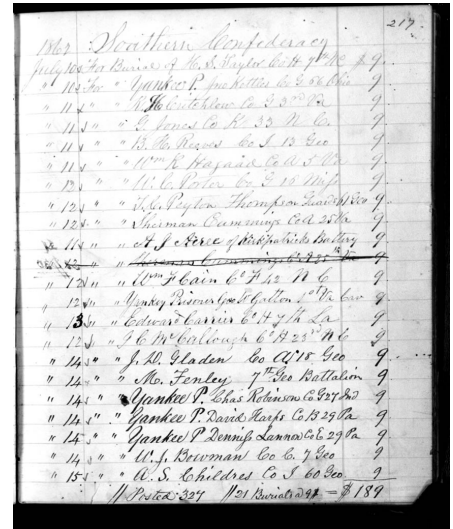 217
1862 Southern Confederacy
July 10 For Burial of H. S. Taylor Co H 7th NC $ 9.
" 10 For " Yankee P. Jno Kettles Co G 66 Ohio 9
" 11 " " Critchlow Co 3rd Va 9
" 11 " " G. Jones Co K 33 N Ca 9
" 11 " " B. H. Reeves Co I 13 Geo 9
" 11 " " Wm R Hazard Co A 5 Va 9
" 12 " " W. C. Porter Co G 16 Miss 9
" 12 " " Peyton Thompson 61 Geo 9
" 12 " " Sherman Cummings Co A 25 Va 9
" 11 " " A. J. of Kirkpatricks Battery 9
" 12 " " Cummings Co A 25 Va 9
" 12 " " Wm H Cain Co F 42 N C 9
" 12 " Yankey Prisoner Geo W Gatton 1st Va Cav 9
" 13 " " Edward Carrier Co H 7th La 9
" 12 " " J C McCallough Co H 23rd N C 9
" 14 " " J. D. Gladen Co A 18 Geo 9
" 14 " " M. Fenley 7th Geo Battalion 9
" 14 " " Yankee P. Chas Robinson Co G 27 Ind 9
" 14 " " Yankee P. David Harps Co B 29 Pa 9
" 14 " " Yankee P Dennis Lannon Co E 29 Pa 9
" 14 " " W. J. Bowman Co C. 7 Geo 9
" 15 " " A. S. Childres Co I 60 Geo 9
// Posted 327 // 21 Burials @ 9 = $189